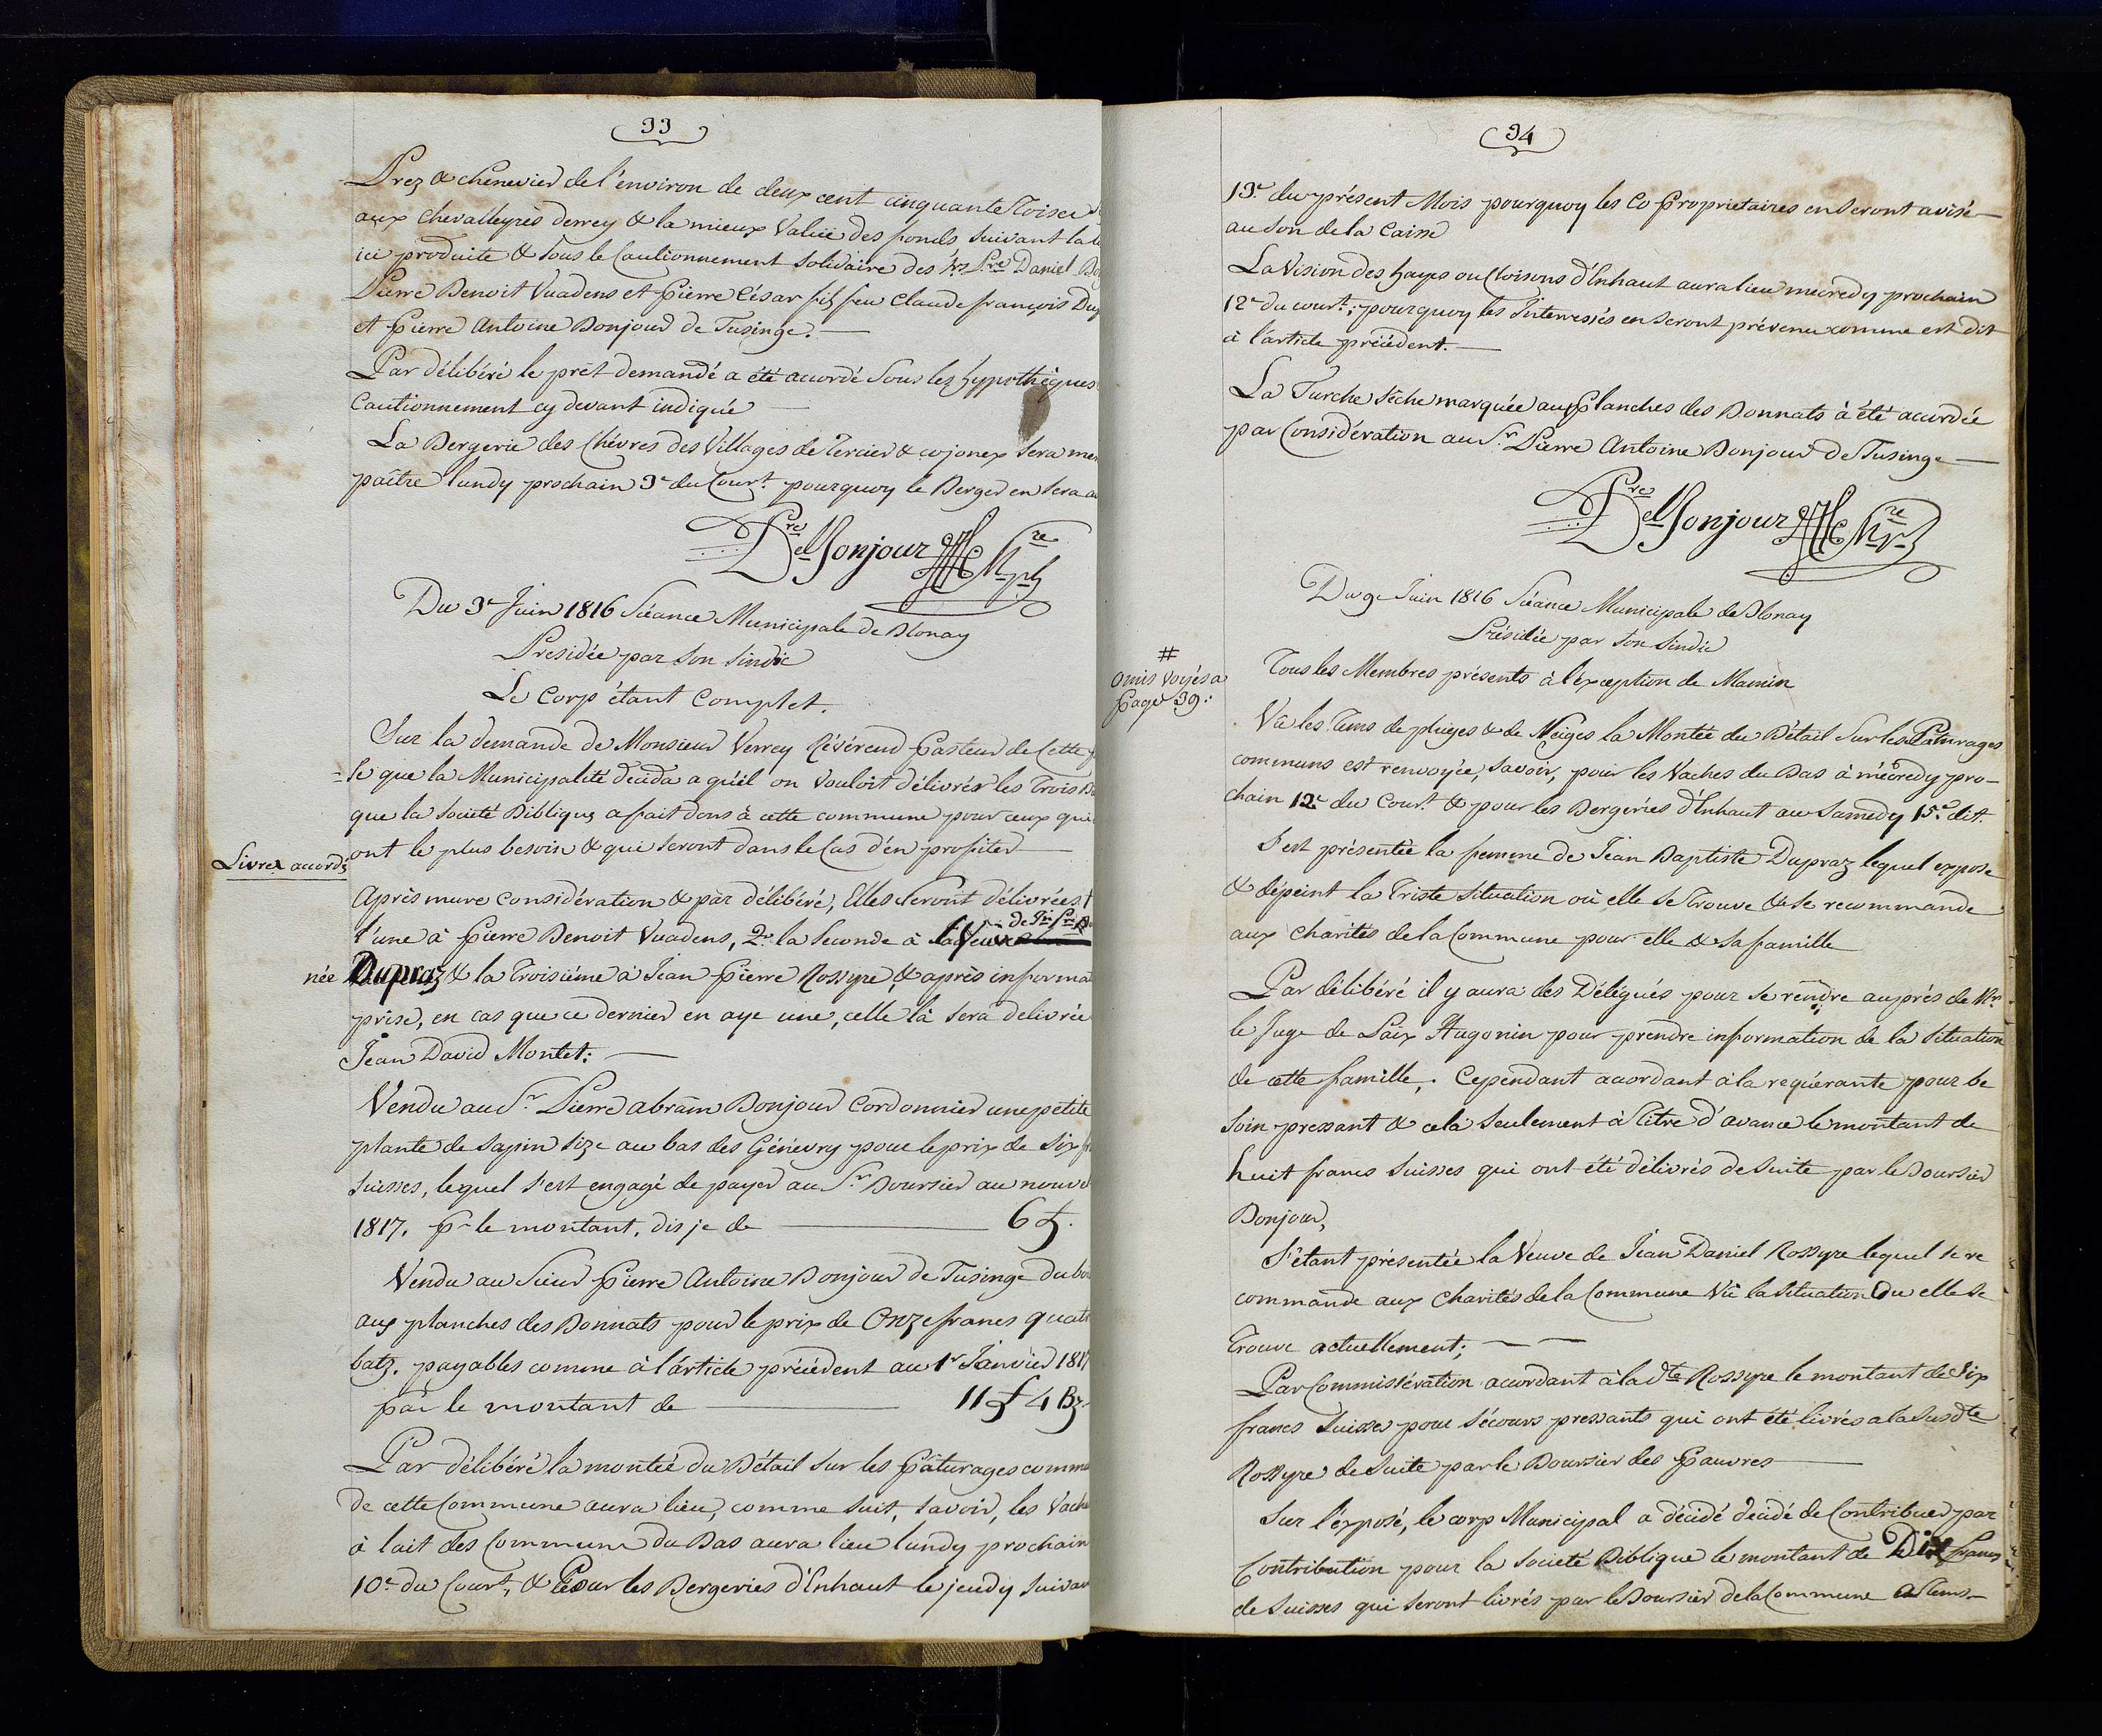 33
Prez & chenevier de l'environ de deux cent cinquante Toises
aux Chevalleyres derrey & la mieux Value des fonds, suivant la
ici produite & sous le Cautionnement solidaire des Daniel
Pierre Benoit Vuadens et Pierre César fils feu Claude françois
et Pierre Antoine Bonjour de Tusinge.
Par délibéré le prêt demandé a été accordé sous les hypothèques
Cautionnement cy devant indiquée
La Bergerie des Chévres des Villages de Tercier & cojonex sera
paître lundy prochain 3e du Court pourquoy le Berger en sera
Pre Del Bonjour
Du 3e Juin 1816 Séance Municipale de Blonay
Presidée par son Sindic
Le Corp étant Complet.
Sur la demande de Monsieur Verrey Révérend Pasteur de Cette
-se que la Municipalité décida a qu'il on vouloit délivrér les Trois
que la Societé Biblique a fait dons à cette commune pour ceux qui
ont le plus besoin & qui seront dans le Cas d'en profiter
Livres accordés
Après mure considération & par délibéré, Elles seront délivrées,
l'une à Pierre Benoit Vuadens, 2e la seconde à la veuve
née Dupraz & la Troisiéme à Jean Pierre Rossyre, & après
prise, en cas que ce dernier en aye une, celle là sera delivrée
Jean David Montet:
Vendu au Sr Pierre abram Bonjour Cordonnier une petite
plante de sapin size au bas des Génévry pour le prix de Six
suisses, lequel s'est engagé de payer au Sr Boursier au
1817. pr le montant, dis je de 6 f.
Vendu au Sieur Pierre Antoine Bonjour de Tusinge du
aux planches des Bonnats pour le prix de Onze francs
batz. payables comme à l'article précédent au 1r Janvier
par le montant de 11 f 4 Bz
Par délibéré la montée du Bétail sur les Pâturages
de cette Commune aura lieu, comme suit, savoir, les
à lait des Commune du Bas aura lieu lundy prochain
10e du Court, & Pour les Bergeries d'Enhaut le jeudy
34
13e du présent Mois pourquoy les Co Proprietaires en seront avisé
au son de la Caisse
La Vision des hayes ou Cloisons d'Enhaut aura lieu mecredy prochain
12e du court; pourquoy les Interressés en seront prévenu comme est dit
à l'article précédent.
La Turche sêche marquée aux Planches des Bonnats à été accordée
par Considération au Sr Pierre Antoine Bonjour de Tusinge
Pre Del Bonjour
Du 9e Juin 1816 Séance Municipale de Blonay
Présidée par son Sindic
# omis voyés a
Page 39:
Tous les Membres présents à l'exception de Mamin
Vû les Tems de pluyes & de Neiges la Montée du Bétail sur les Paturages
communs est renvoyée, savoir, pour les Vaches du Bas à mécredy pro-
chain 12e du Court & pour les Bergeries d'Enhaut au Samedy 15e dit.
S'est présentée la femme de Jean Baptiste Dupraz lequel expose
& dépeint la Triste situation où elle se Trouve & se recommande
aux Charités de la Commune pour elle & sa famille
Par délibéré il y aura des Délégués pour se rendre auprés de Mr
le Juge de Paix Hugonin pour prendre information de la situation
de cette famille, Cependant acordant à la requérante pour be
soin pressant & cela seulement à Titre d'avance le montant de
huit francs suisses qui ont été délivrés de suite par le Boursier
Bonjour,
S'étant présentée la Veuve de Jean Daniel Rossyre lequel se re
commande aux Charités de la Commune Vû la situation Ou elle se
Trouve actuellement;
Par Commissération acordant à la dte Rossyre le montant de Six
francs suisses pour sécours pressants qui ont été livrés a la susdte
Rossyre de suite par le Boursier des Pauvres
Sur l'éxposé, le corp Municipal a décidé décidé de Contribuer par
Contribution pour la Societé Biblique le montant de Dix francs
de Suisses qui seront livrés par le Boursier de la Commune a Tems